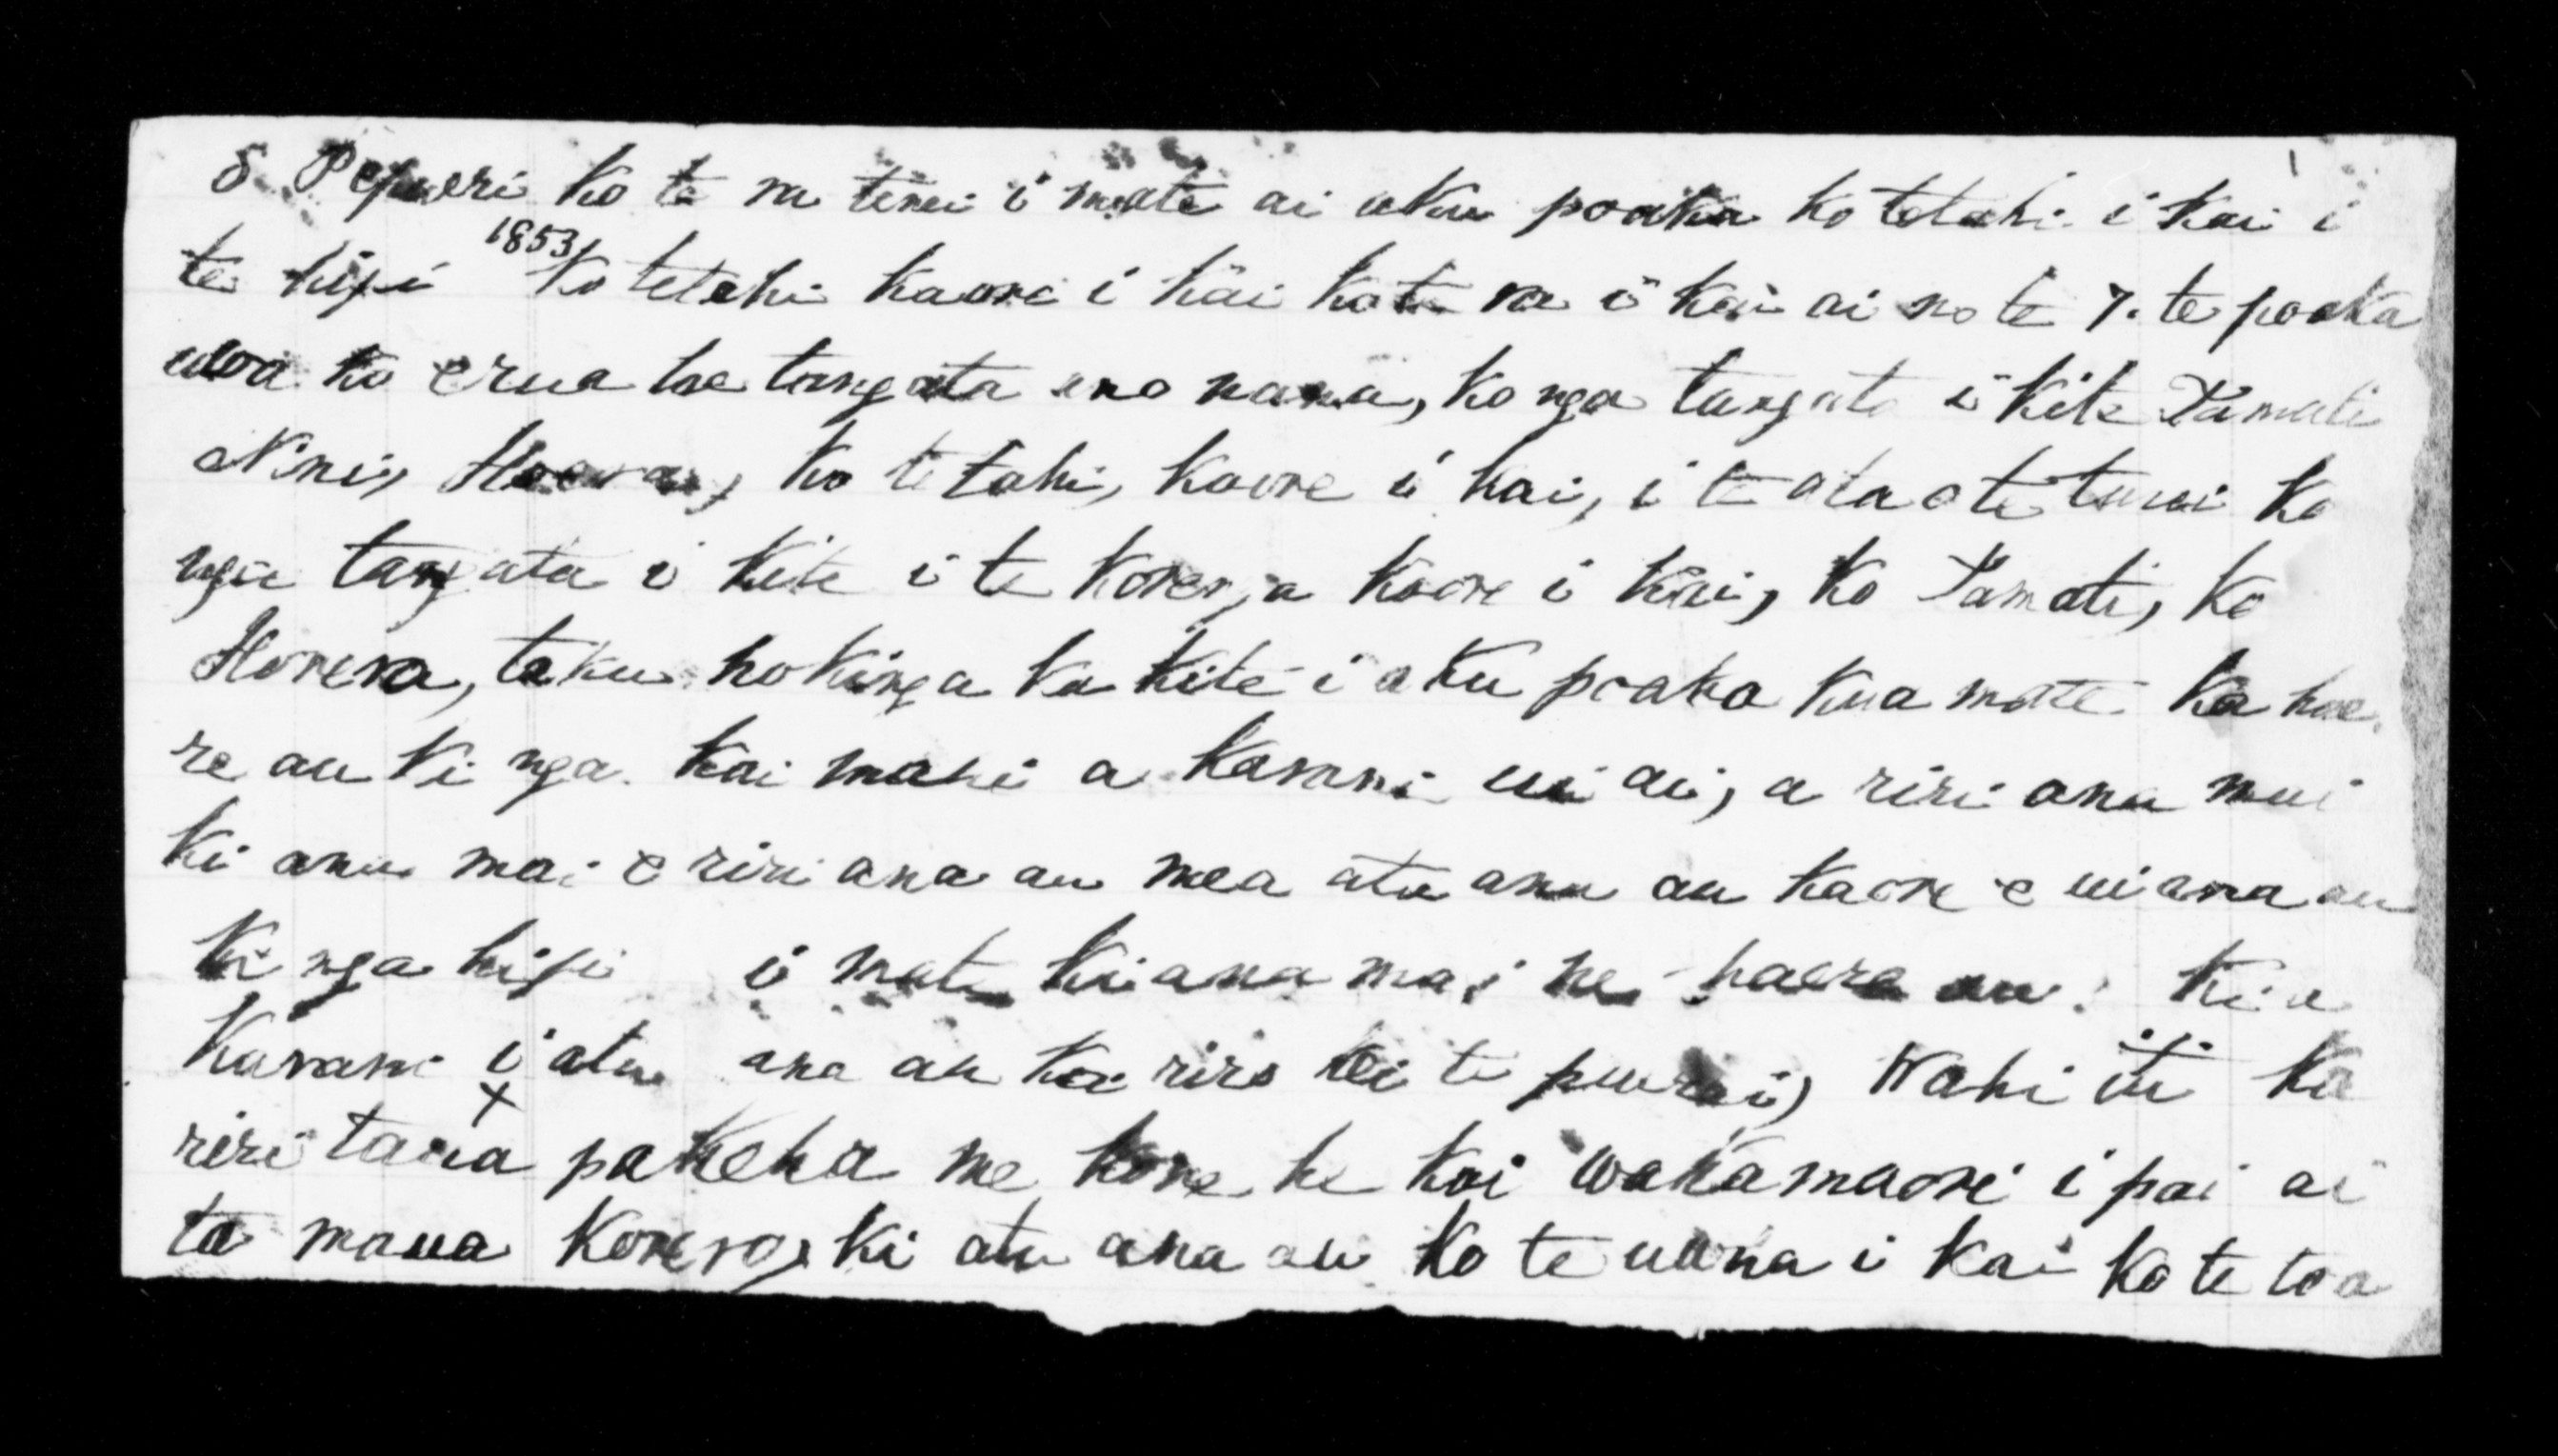 8 Pepueri ko te ra tenei i mate ai aku poaka ko tetahi i kai i
te hipi 1853 ko tetahi kaore i kai ko te ra i kai ai no te 7. te poaka
uwa ko erua he tangata ano nana, ko nga tangata i kite Tamati
Nini, ko tetahi, kaore i kai, i te ata o te turei ko
nga tangata i kite i te korenga kaore i kai, ko Tamati, ko
Horera, taku hokinga ka kite i aku poaka kua mate ka hae
re au ki nga kai mahi a Karami ui ai, a riri ana mai
ki ana mai e riri ana au mea atu ana au kaore e ui ana au
ki nga hipi i mate kiana mai ne haere au ki a
Karami i atu ana au ka riro ki te purei, Wahi iti ka
x
riri taua pakeha me kore he kai wakamaori i pai ai
ta maua korero, ki atu ana au ko te uwha i kai ko te toa